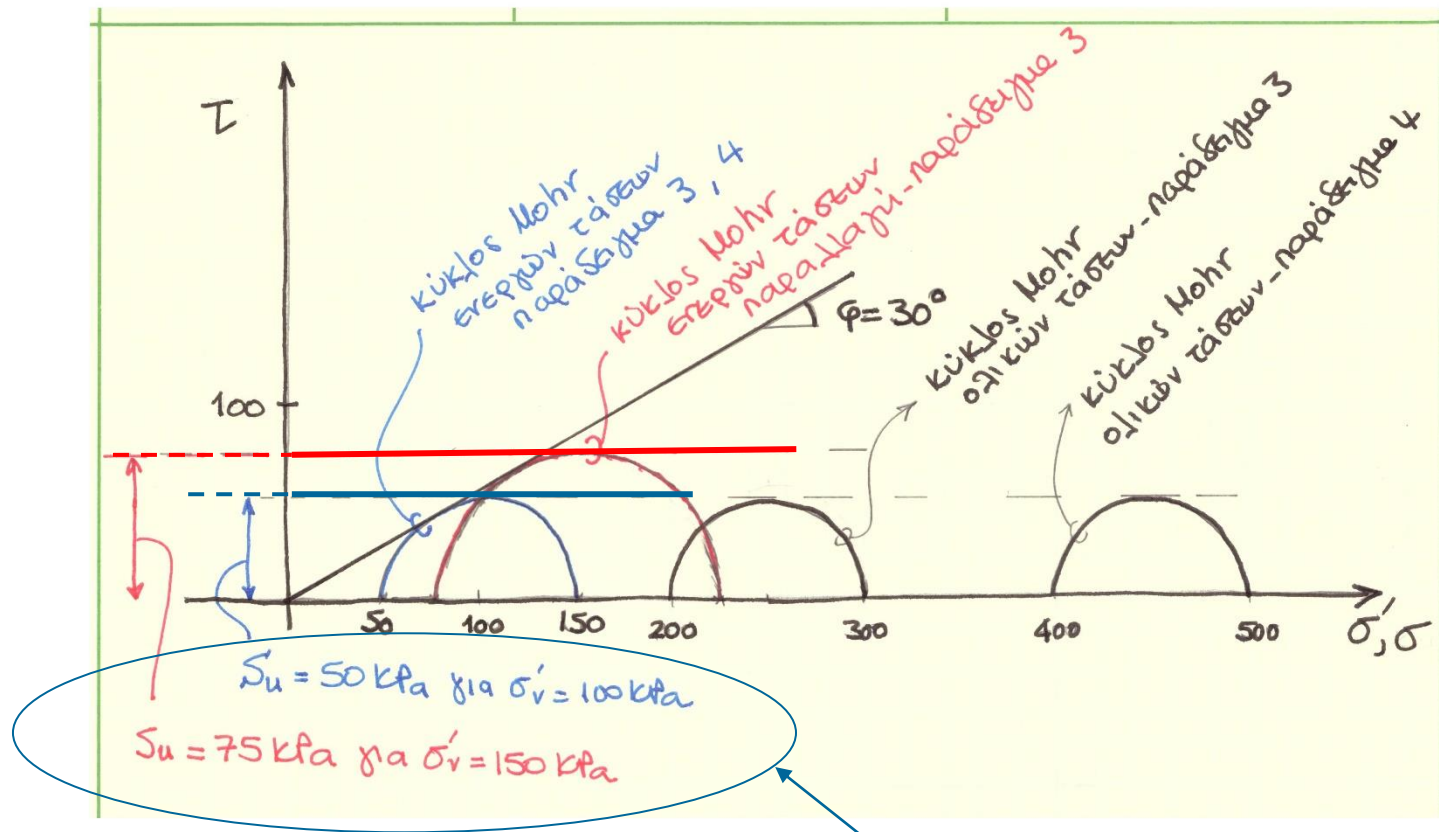 τ
κύκλος Mohr
ενεργών τάσεων
παράδειγμα 3, 4
κύκλος Mohr
ενεργών τάσεων
παραλλαγή-παράδειγμα 3
κύκλος Mohr
ολικών τάσεων-παράδειγμα 3
κύκλος Mohr
ολικών τάσεων-παράδειγμα 4
φ=30°
100
50 100 150 200 300 400 500 σ',σ
Su = 50 kPa για σ'v = 100 kPa
Su = 75 kPa για σ'v = 150 kPa